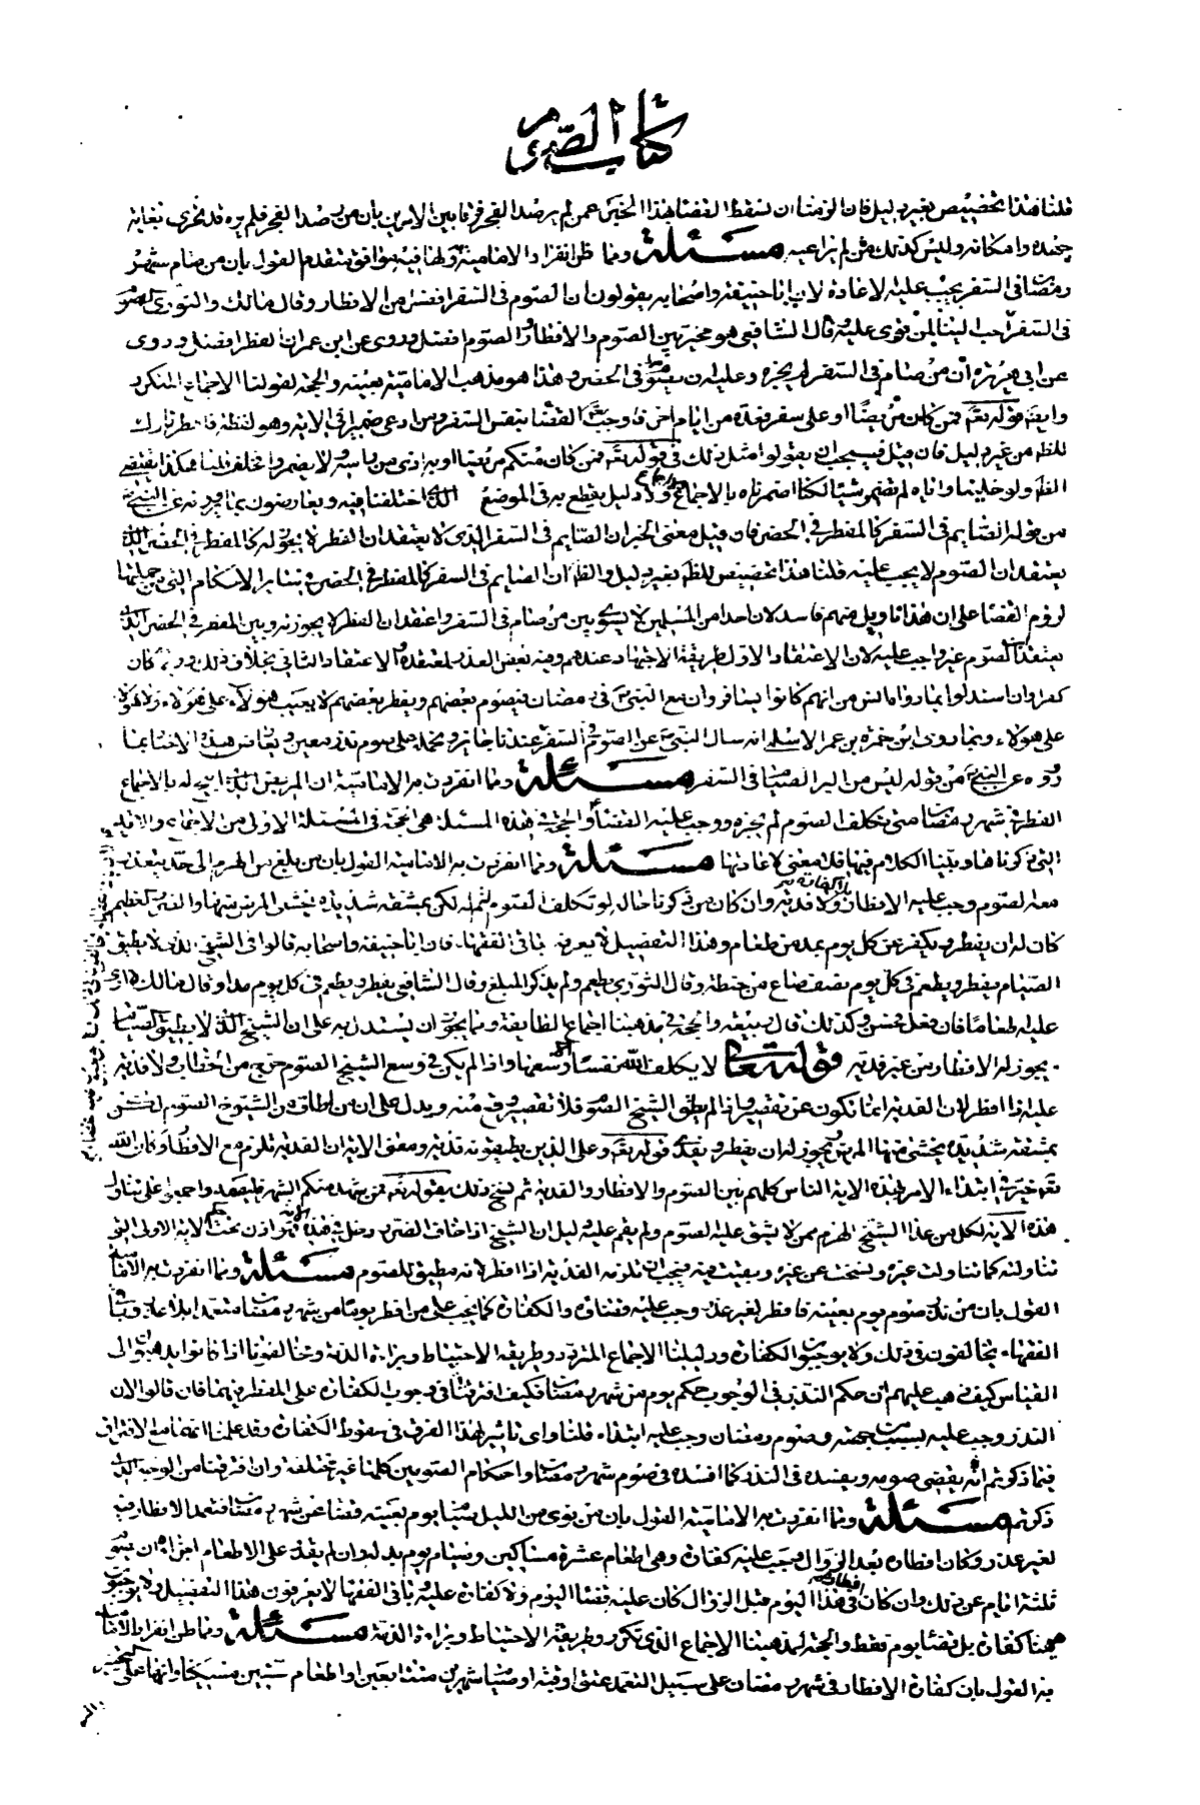 كتاب الصوم
قلنا هذا تخصيص بغير دليل فان الزمنا ان نسقط القضا بهذا الخبر عمن لم يرصد الفجر فرقنا بين الامرين بان من رصد الفجر فلم يره قد تحرى بغاية
جهده وامكانه وليس كذلك من لم يراعيه مسئلة ومما ظن انفراد الامامية به ولها فيه موافق متقدم القول بان من صام شهر
رمضان فى السفر يجب عليه الاعادة لان ابا حنيفة واصحابه يقولون ان الصوم فى السفر افضل من الافطار وقال مالك والثورى الصوم
فى السفر احب الينا لمن قوى عليه وقال الشافعى هو مخير بين الصوم والافطار والصوم افضل وروى عن ابن عمر ان الفطر افضل وروى
عن ابى هريرة ان من صام فى السفر لم يجزه وعليه ان يصوم فى الحضر وهذا هو مذهب الامامية بعينه والحجة لقولنا الاجماع المتكرر
وايضا قوله تعالى فمن كان مريضا او على سفر فعدة من ايام اخر فاوجب القضا بنفس السفر ومن ادعى ضميرا فى الاية وهو لفظة فافطر تارك
للظاهر من غير دليل فان قيل فيجب ان يقولوا مثل ذلك فى قوله تعالى فمن كان منكم مريضا او به اذى من راسه ولا يضمروا فحلق قلنا هكذا يقتضى
الظاهر ولو خلينا واياه لم نضمر شيئا لكنا اضمرناه بالاجماع ولا اجماع ولا دليل يقطع به فى الموضع الذى اختلفنا فيه ويعارضون بما يروونه عن النبى
من قوله الصايم فى السفر كالمفطر فى الحضر فان قيل معنى الخبر ان الصايم فى السفر الذى لا يعتقد ان الفطر لا يجوز له كالمفطر فى الحضر الذى
يعتقد ان الصوم لا يجب عليه قلنا هذا تخصيص للظاهر بغير دليل والظاهر ان الصايم فى السفر كالمفطر فى الحضر فى ساير الاحكام التى من جملتها
لزوم القضا على ان هذا تاويل منهم فاسد لان احدا من المسلمين لا يسوى بين من صام فى السفر واعتقد ان الفطر لا يجوز له وبين المفطر فى الحضر الذى
يعتقد ان الصوم غير واجب عليه لان الاعتقاد الاول طريقه الاجتهاد عندهم وفيه بعض العذر لمعتقده والاعتقاد الثانى بخلاف ذلك وربما كان
كفرا وان استدلوا بما رواه انس من انهم كانوا يسافرون مع النبى فى رمضان فيصوم بعضهم ويفطر بعضهم لا يعيب هولاء على هولاء ولا هولاء
على هولاء وبما روى ابن حمزة بن عمر الاسلمى انه سال النبى عن الصوم فى السفر عندنا جايز ومحمد على صوم نذر معين ويعارض هذه الاخبار بما
رووه عن النبى من قوله ليس من البر الصيام فى السفر مسئلة ومما انفردت به الامامية ان المريض الذى ابيح له بالاجماع
الفطر فى شهر رمضان متى تكلف الصوم لم يجزه ووجب عليه القضا والحجة فى هذه المسئلة هى الحجة فى المسئلة الاولى من الاجماع والاية
التى ذكرناها وبينا الكلام فيها فلا معنى لاعادتها مسئلة ومما انفردت به الامامية القول بان من بلغ من الهرم الى حد يتعذر
معه الصوم وجب عليه الافطار بلا كفارة ولا فدية وان كان من ذكرنا حاله لو تكلف الصوم لتم له لكن بمشقة شديدة يخشى المرض منها والضرر العظيم
كان له ان يفطر ويكفر عن كل يوم بمد من طعام وهذا التفصيل لا يعرفه باقى الفقهاء فان ابا حنيفة واصحابه قالوا فى الشيخ الذى لا يطيق
الصيام يفطر ويطعم فى كل يوم نصف صاع من حنطة وقال الثورى يطعم ولم يذكر المبلغ وقال الشافعى يفطر ويطعم فى كل يوم مدا وقال مالك لا ارى
عليه طعاما فان فعل فحسن وكذلك قال ربيعة والحجة فى مذهبنا اجماع الطايفة ومما يجوز ان يستدل به على ان الشيخ الذى لا يطيق الصيام
يجوز له الافطار من غير فدية قوله تعالى لا يكلف الله نفسا الا وسعها واذا لم يكن فى وسع الشيخ الصوم خرج من الخطاب ولا فدية
عليه اذا افطر لان الفدية انما تكون عن تقصير واذا لم يطق الشيخ الصوم فلا تقصير وقع منه ويدل على ان من اطاق من الشيوخ الصوم لكن
بمشقة شديدة يخشى منها المرض يجوز له ان يفطر ويفدى قوله تعالى وعلى الذين يطيقونه فدية ومعنى الاية ان الفدية تلزم مع الافطار وكان الله
تعالى خير فى ابتداء الامر بهذه الاية الناس كلهم بين الصوم والافطار والفدية ثم نسخ ذلك بقوله تعالى فمن شهد منكم الشهر فليصمه واجمعوا على تناول
هذه الاية لكل من عدا الشيخ الهرم ممن لا يشق عليه الصوم ولم يقم عليه دليل ان الشيخ اذا خاف الضرر دخل فى هذه الاية فهو اذن تحت حكم الاية الاولى التى
تناولته كما تناولت غيره ونسخت عن غيره وبقيت فيه فيجب ان تلزمه الفدية اذا افطر لانه مطيق للصوم مسئلة ومما انفردت به الامامية
القول بان من نذر صوم يوم بعينه فافطر لغير عذر وجب عليه قضاؤه والكفارة كما يجب على من افطر يوما من شهر رمضان متعمدا بلا عذر وباقى
الفقهاء يخالفون فى ذلك ولا يوجبون الكفارة ودليلنا الاجماع المتردد وطريقة الاحتياط وبراءة الذمة ومخالفونا اذا كانوا يذهبون الى
القياس كيف ذهب عليهم ان حكم النذر فى الوجوب حكم يوم من شهر رمضان فكيف افترقا فى وجوب الكفارة على المفطر فيهما فان قالوا لان
النذر وجب عليه بسبب من جهته وصوم رمضان وجب عليه ابتداء قلنا واى تاثير لهذا الفرق فى سقوط الكفارة وقد علمنا انهما مع الافتراق
فيما ذكرتم انه يقضى صومه ويفسده فى النذر كما افسده فى صوم شهر رمضان واحكام الصومين كلها غير مختلفة وان افترقنا من الوجه الذى
ذكرتم مسئلة ومما انفردت به الامامية القول بان من نوى من الليل صيام يوم بعينه قضا عن شهر رمضان فتعمد الافطار فيه
لغير عذر وكان افطاره بعد الزوال وجب عليه كفارة وهى اطعام عشرة مساكين وصيام يوم بدله وان لم يقدر على الاطعام اجزاه ان يصوم
ثلثة ايام عن ذلك وان كان افطاره فى هذا اليوم قبل الزوال كان عليه قضا اليوم ولا كفارة عليه وباقى الفقها لا يعرفون هذا التفصيل ولا يوجبون
هيهنا كفارة بل قضا يوم فقط والحجة لمذهبنا الاجماع الذى تكرر وطريقة الاحتياط وبراءة الذمة مسئلة ومما ظن انفراد الامامية
به القول بان كفارة الافطار فى شهر رمضان على سبيل التعمد عتق رقبة او صيام شهرين متتابعين او اطعام ستين مسكينا وانها على التخيير